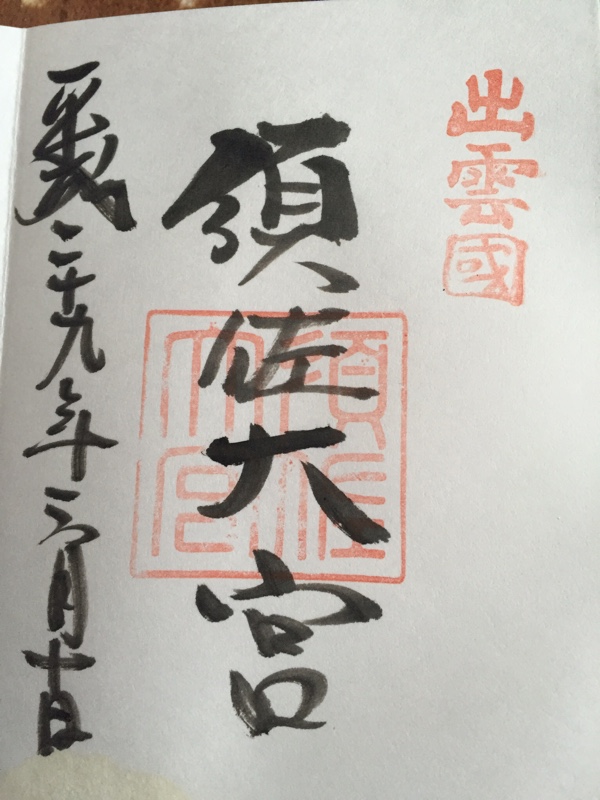 出雲國
須佐大宮
須佐
大宮
平成二十九年三月十日